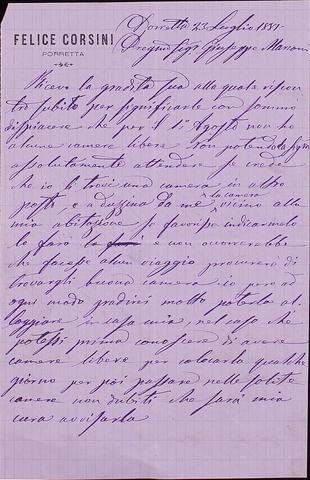 FELICE CORSINI
PORRETTA
Porretta 23 Luglio 1887
Pregmo Sigr Giuseppe Marconi
Ricevo la gradita sua alla quale rispon
do subito per significarle con sommo
dispiacere che per il 1º Agosto non ho
alcune camere libere. Non potendola
assolutamente attendere se crede
che io le trovi una camera in altro
posto, e a dozzina da me, la camera vicino alla
mia abitazione se favorisse indicarmelo
lo farò e non occorrerebbe
che facesse alcun viaggio procurerò di
trovargli buona camera io però ad
ogni modo gradirei molto poterla al
loggiare in casa mia, nel caso che
potessi prima conoscere di avere
camere libere per collocarla qualche
giorno per poi passare nelle solite
camere non dubiti che sarà mia
cura avvisarla